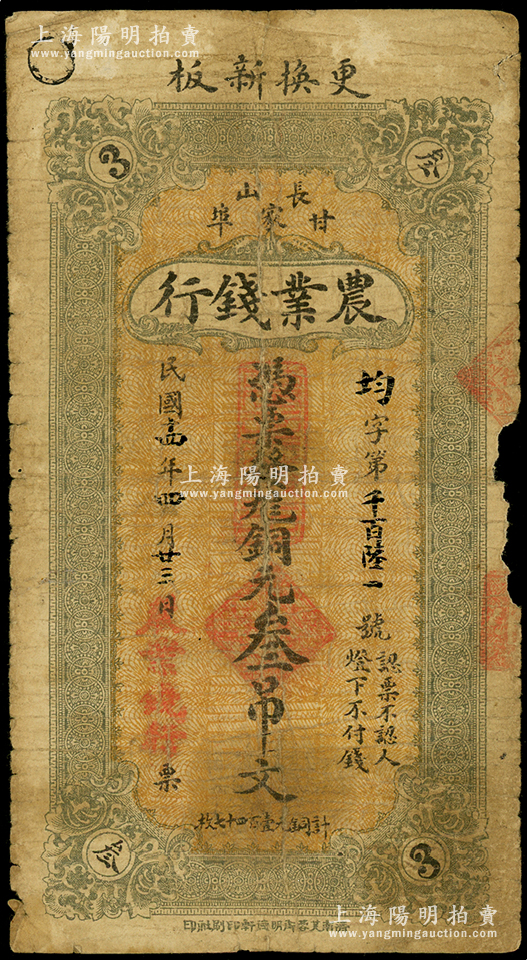 上海陽明拍賣
www.yangmingauction.com
更換新板
3
叄
長山
甘家埠
農業錢行
均字第千百陸一號
認票不認人
燈下不付錢
憑票 銅元叁吊文
民國十四年四月廿三日
票
上海陽明拍賣
www.yangmingauction.com
計銅元壹百四十七枚
叄
3
上海陽明拍賣
www.yangmingauction.com